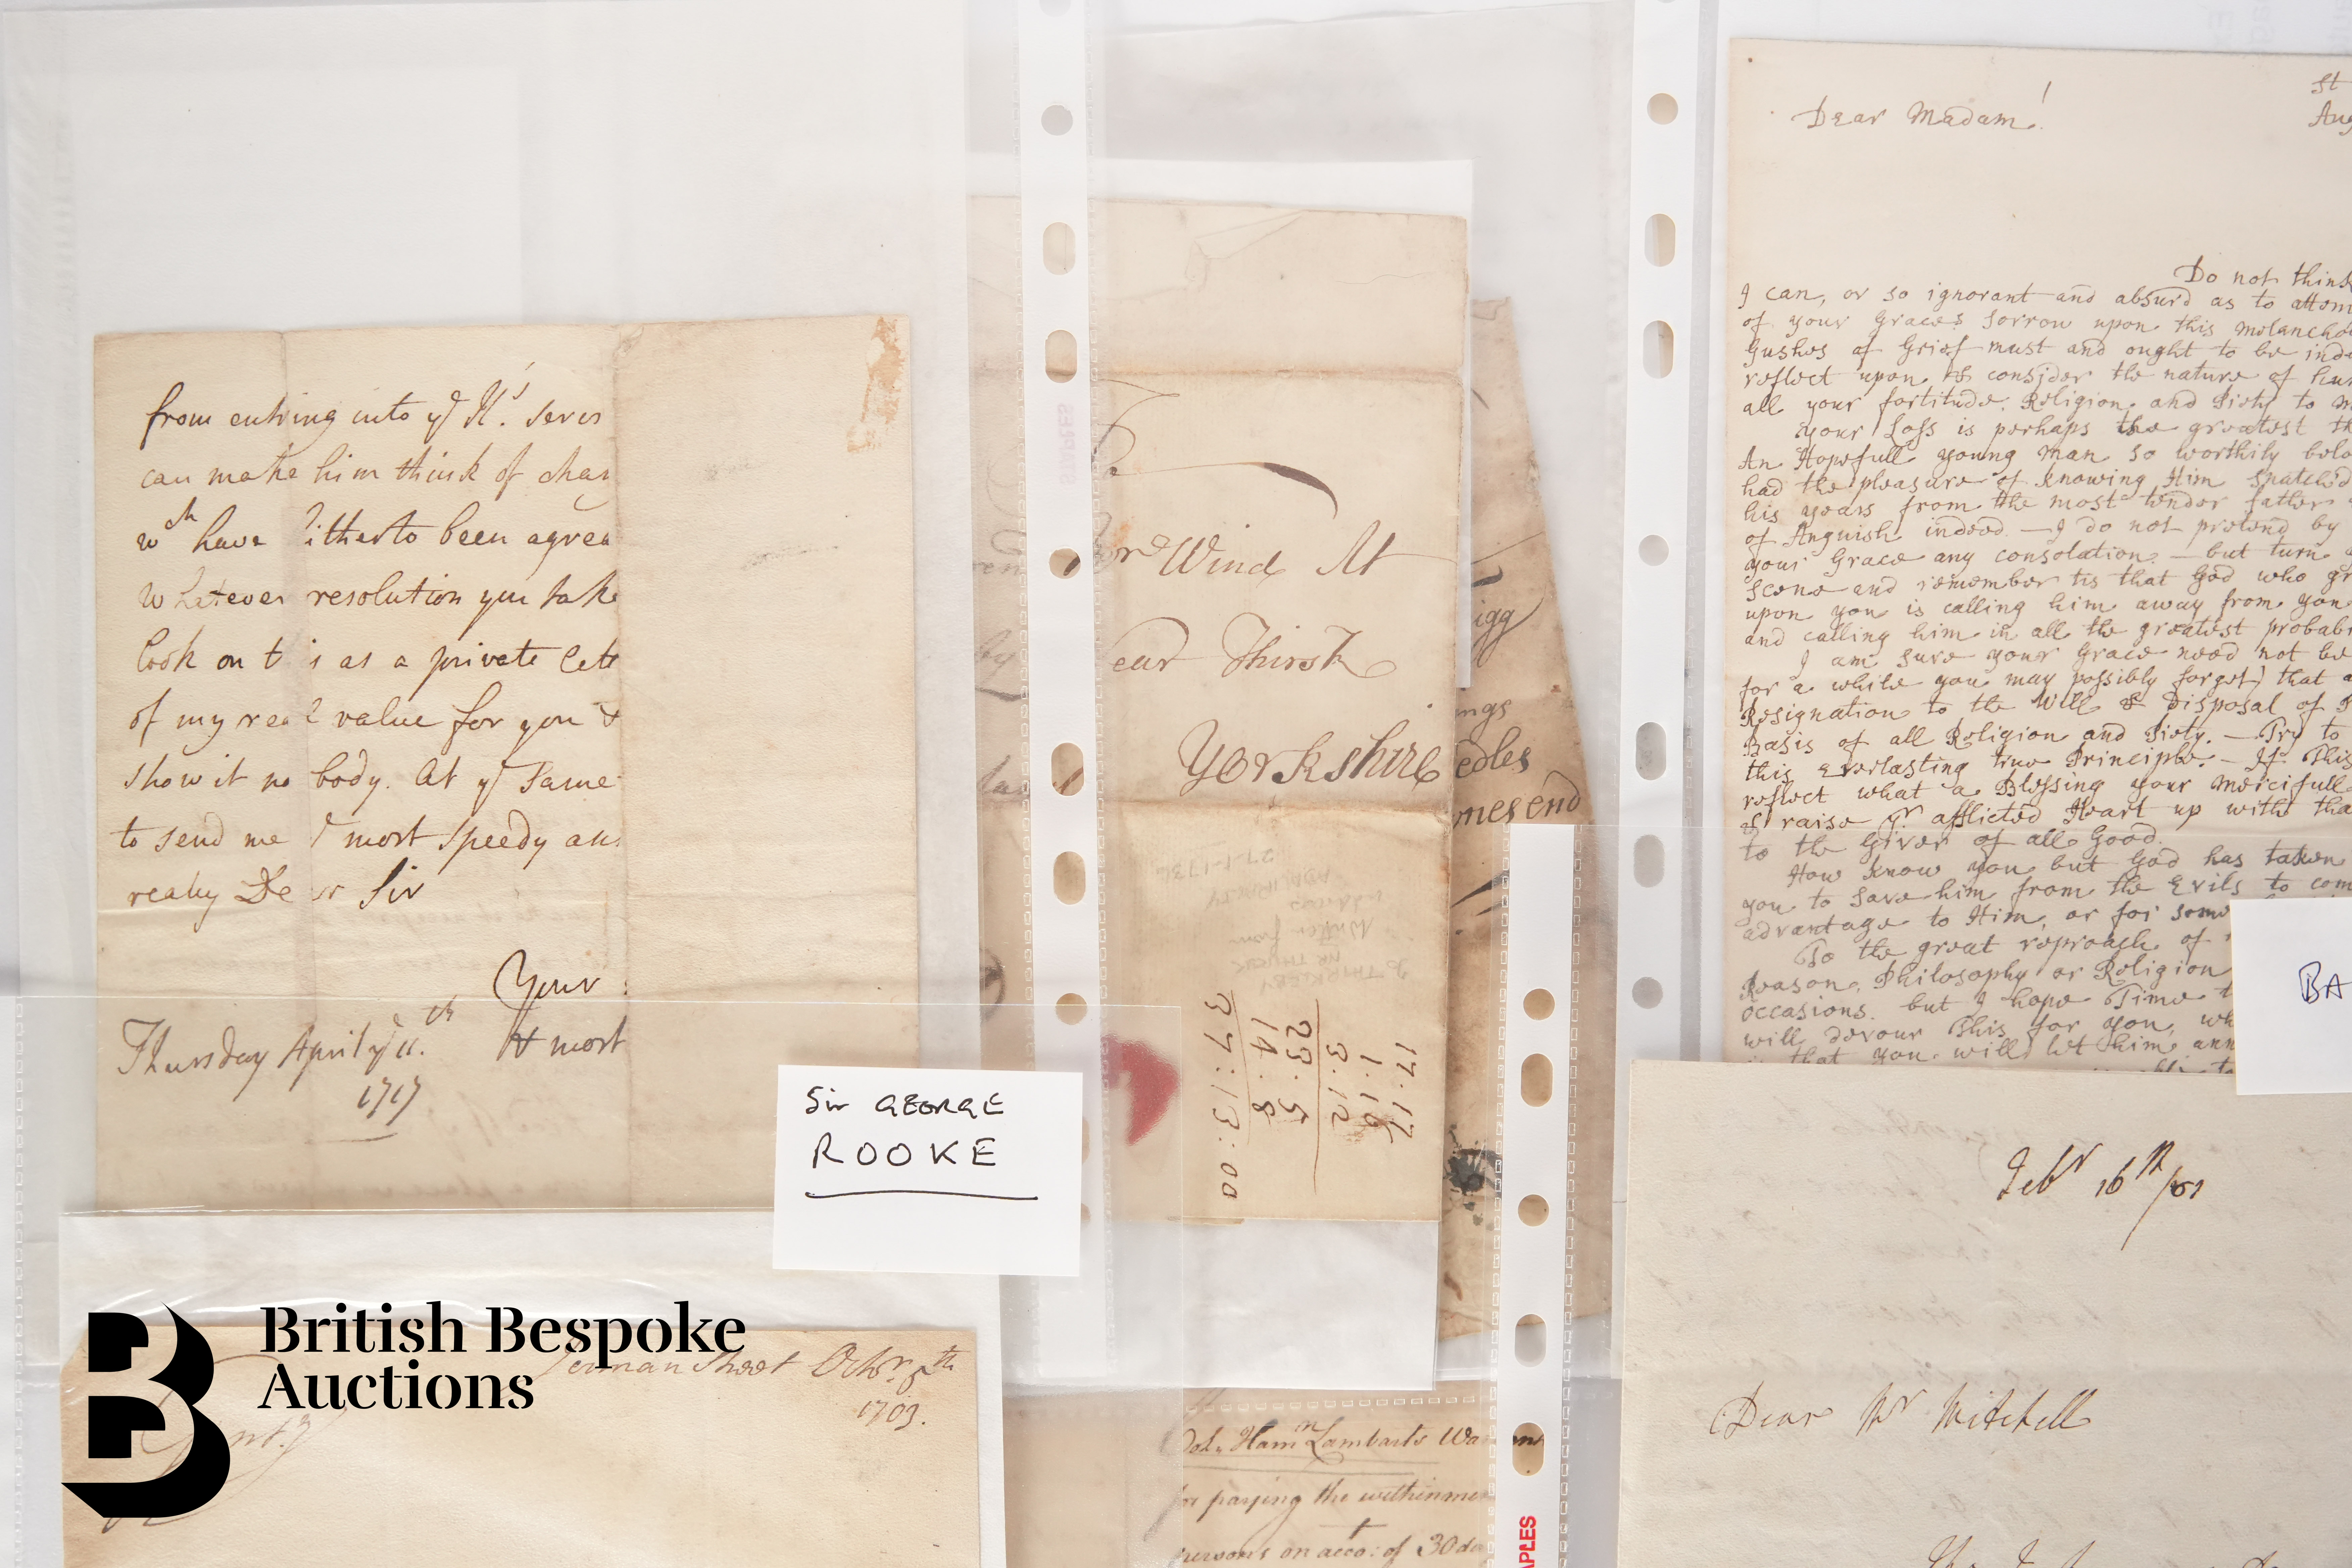 from entring into yᵉ K's. Seres
can make him think of chan
wᶜʰ have hitherto been agrea
Whatever resolution you take
look on this as a private Lett
of my real value for you &
show it no body. At yᵉ Same
to send me yᵉ most Speedy ans
really Dear Sir
Your
& most
Thursday April yᵉ 11.ᵗʰ
1717
Sir GEORGE
ROOKE
British Bespoke
Auctions
Street Octbr. 5th
1703.
Wind At
ear Thirsk
Yorkshire
igg
ings
edles
mes end
by
17.17
1.16
3.12
23.5
14.8
37:13:00
Hamn Lambarts Wa
for paying the withinmen
persons on acco: of 30 da
APLES
St
Aug
Dear Madam!
Do not think
I can, or so ignorant and absurd as to attem
of your Graces Sorrow upon this melancho
Gushes of Grief must and ought to be indu
reflect upon & consider the nature of hum
all your fortitude Religion and Piety to m
your Loss is perhaps the greatest th
An Hopefull young man so worthily belo
had the pleasure of knowing Him snatch'd
his years from the most tender father
of Anguish indeed — I do not pretend by
your Grace any consolation — but turn
scene and remember tis that God who gr
upon you is calling him away from you
and calling him in all the greatest probabi
I am sure your Grace need not be
for a while you may possibly forget) that a
Resignation to the Will & Disposal of
Basis of all Religion and Piety. — Try to
this Everlasting true Principle. — If This
reflect what a Blessing your Mercifull
& raise yr afflicted Heart up with tha
to the Giver of all Good.
How know you but God has taken
you to save him from the Evils to com
advantage to Him, or for some
To the great reproach of
Reason, Philosophy or Religion
occasions. but I hope Time
will devour This for you, wh
that you will let him ann
BA
Febr 16th/
Dear Mr Mitchell